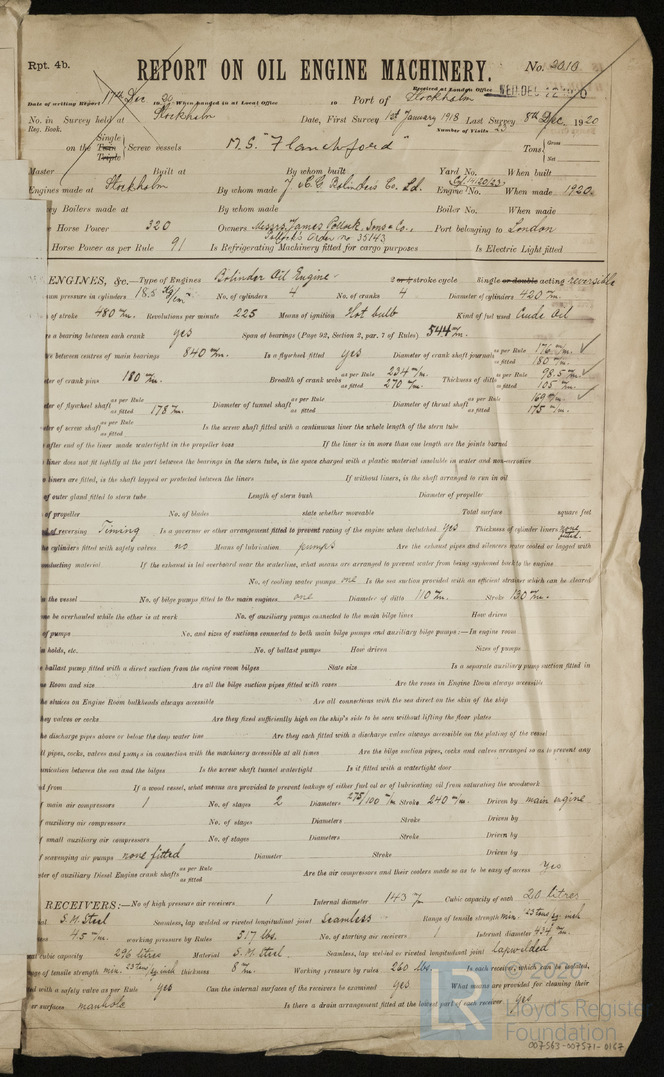 Rpt. 4b.
REPORT ON OIL ENGINE MACHINERY.
No. 2010
Received at London Office WED. DEC. 22 1920
Date of writing Report 17th Dec 1920 When handed in at Local Office 19 Port of Stockholm
No. in Survey held at Stockholm Date, First Survey 1st January 1918 Last Survey 8th Dec. 1920
Reg. Book.
Number of Visits
on the Single Twin Triple Screw vessels M.S. "Flanchford" Tons Gross Net
Master Built at By whom built Yard No. When built
Engines made at Stockholm By whom made J & C.G. Bolinders Co. Ld. Engine No. When made 1920.
y Boilers made at By whom made Boiler No. When made
e Horse Power 320 Owners Messrs. James Pollock, Sons & Co., Port belonging to London
Pollock's Order no 35143
Horse Power as per Rule 91 Is Refrigerating Machinery fitted for cargo purposes Is Electric Light fitted
ENGINES, &c.—Type of Engines Bolinder Oil Engine. 2 or 4 stroke cycle Single or double acting reversible
um pressure in cylinders 18,5 kg/cm² No. of cylinders 4 No. of cranks 4 Diameter of cylinders 420 m/m.
of stroke 480 m/m. Revolutions per minute 225 Means of ignition Hot bulb Kind of fuel used Crude Oil
e a bearing between each crank yes Span of bearings (Page 92, Section 2, par. 7 of Rules) 544 m/m.
e between centres of main bearings 840 m/m. Is a flywheel fitted yes Diameter of crank shaft journals as per Rule 176 m/m. as fitted 180 m/m.
ter of crank pins 180 m/m. Breadth of crank webs as per Rule 234 m/m. as fitted 270 m/m. Thickness of ditto as per Rule 98.5 m/m. as fitted 105 m/m.
ter of flywheel shaft as per Rule as fitted 178 m/m. Diameter of tunnel shaft as per Rule as fitted Diameter of thrust shaft as per Rule 169 m/m. as fitted 175 m/m.
ter of screw shaft as per Rule as fitted Is the screw shaft fitted with a continuous liner the whole length of the stern tube
after end of the liner made watertight in the propeller boss If the liner is in more than one length are the joints burned
liner does not fit tightly at the part between the bearings in the stern tube, is the space charged with a plastic material insoluble in water and non-corrosive
liners are fitted, is the shaft lapped or protected between the liners If without liners, is the shaft arranged to run in oil
of outer gland fitted to stern tube Length of stern bush Diameter of propeller
of propeller No. of blades state whether moveable Total surface square feet
d of reversing Timing Is a governor or other arrangement fitted to prevent racing of the engine when declutched yes Thickness of cylinder liners none fitted.
he cylinders fitted with safety valves no Means of lubrication pumps Are the exhaust pipes and silencers water cooled or lagged with
nducting material If the exhaust is led overboard near the waterline, what means are arranged to prevent water from being syphoned back to the engine
No. of cooling water pumps one Is the sea suction provided with an efficient strainer which can be cleared
in the vessel No. of bilge pumps fitted to the main engines one Diameter of ditto 110 m/m. Stroke 130 m/m.
ne be overhauled while the other is at work No. of auxiliary pumps connected to the main bilge lines How driven
of pumps No. and sizes of suctions connected to both main bilge pumps and auxiliary bilge pumps:—In engine room
n holds, etc. No. of ballast pumps How driven Sizes of pumps
e ballast pump fitted with a direct suction from the engine room bilges State size Is a separate auxiliary pump suction fitted in
ne Room and size Are all the bilge suction pipes fitted with roses Are the roses in Engine Room always accessible
he sluices on Engine Room bulkheads always accessible Are all connections with the sea direct on the skin of the ship
hey valves or cocks Are they fixed sufficiently high on the ship's side to be seen without lifting the floor plates
he discharge pipes above or below the deep water line Are they each fitted with a discharge valve always accessible on the plating of the vessel
ll pipes, cocks, valves and pumps in connection with the machinery accessible at all times Are the bilge suction pipes, cocks and valves arranged so as to prevent any
nication between the sea and the bilges Is the screw shaft tunnel watertight Is it fitted with a watertight door
d from If a wood vessel, what means are provided to prevent leakage of either fuel oil or of lubricating oil from saturating the woodwork
f main air compressors 1 No. of stages 2 Diameters 275/100 m/m Stroke 240 m/m. Driven by main engine
f auxiliary air compressors No. of stages Diameters Stroke Driven by
f small auxiliary air compressors No. of stages Diameters Stroke Driven by
f scavenging air pumps none fitted Diameter Stroke Driven by
ter of auxiliary Diesel Engine crank shafts as per Rule as fitted Are the air compressors and their coolers made so as to be easy of access yes
RECEIVERS:—No. of high pressure air receivers 1 Internal diameter 143 m/m Cubic capacity of each 20 litres
ial S.M. Steel Seamless, lap welded or riveted longitudinal joint seamless Range of tensile strength min. 25 tons sq. inch
ess 4.5 m/m. working pressure by Rules 517 lbs. No. of starting air receivers 1 Internal diameter 434 m/m.
cubic capacity 296 litres Material S.M. Steel. Seamless, lap welded or riveted longitudinal joint lapwelded
nge of tensile strength min. 25 tons sq. inch thickness 8 m/m. Working pressure by rules 260 lbs. Is each receiver, which can be isolated,
ed with a safety valve as per Rule yes Can the internal surfaces of the receivers be examined yes What means are provided for cleaning their
er surfaces manhole Is there a drain arrangement fitted at the lowest part of each receiver yes
© 2020
Lloyd's Register
Foundation
007563-007571-0167